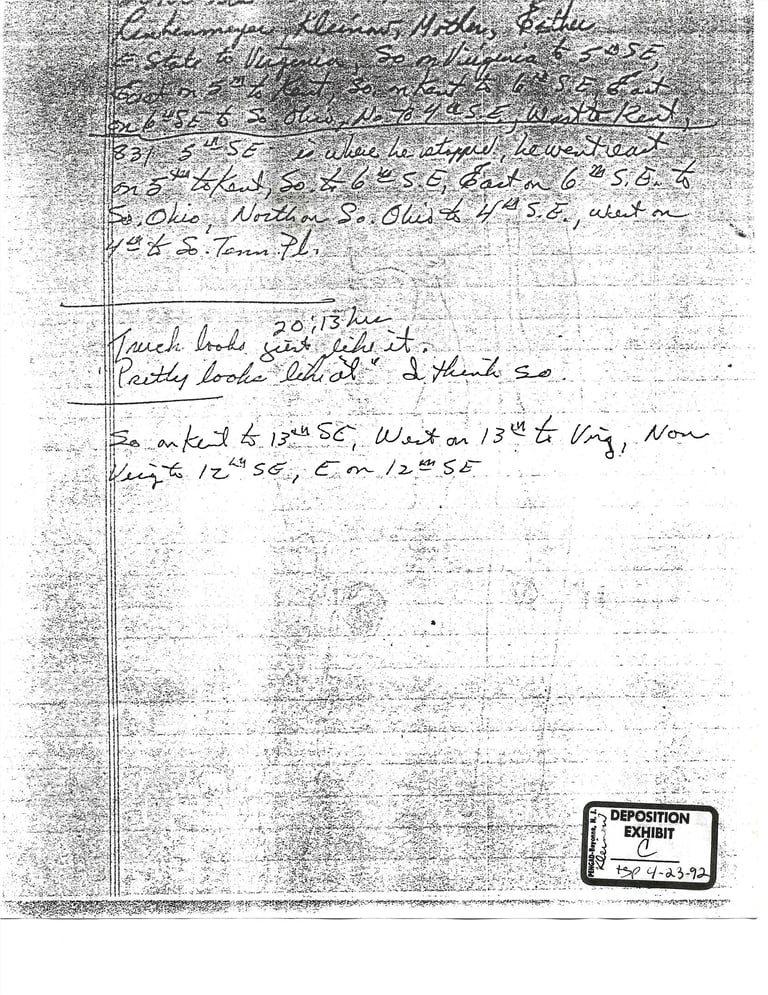 Kleinow, Mother, Esther
E State to Virginia, So on Virginia to 5th SE,
East on 5th to Kent, So. on Kent to 6th S.E, East
on 6th SE to So Ohio, No. to 4th S.E, West to Kent,
831 5th SE is where he stopped, he went east
on 5th to Kent, So. to 6th S.E, East on 6th S.E. to
So. Ohio, North on So. Ohio to 4th S.E., west on
4th to So. Tenn. Pl.
20:13 hrs
Truck looks just like it.
"Pretty looks like it" I think so.
So on Kent to 13th SE, West on 13th to Virg, No on
Virg to 12th SE, E on 12th SE
DEPOSITION
EXHIBIT
C
PENGAD-Bayonne, N. J.
Kleinow
tsp 4-23-92